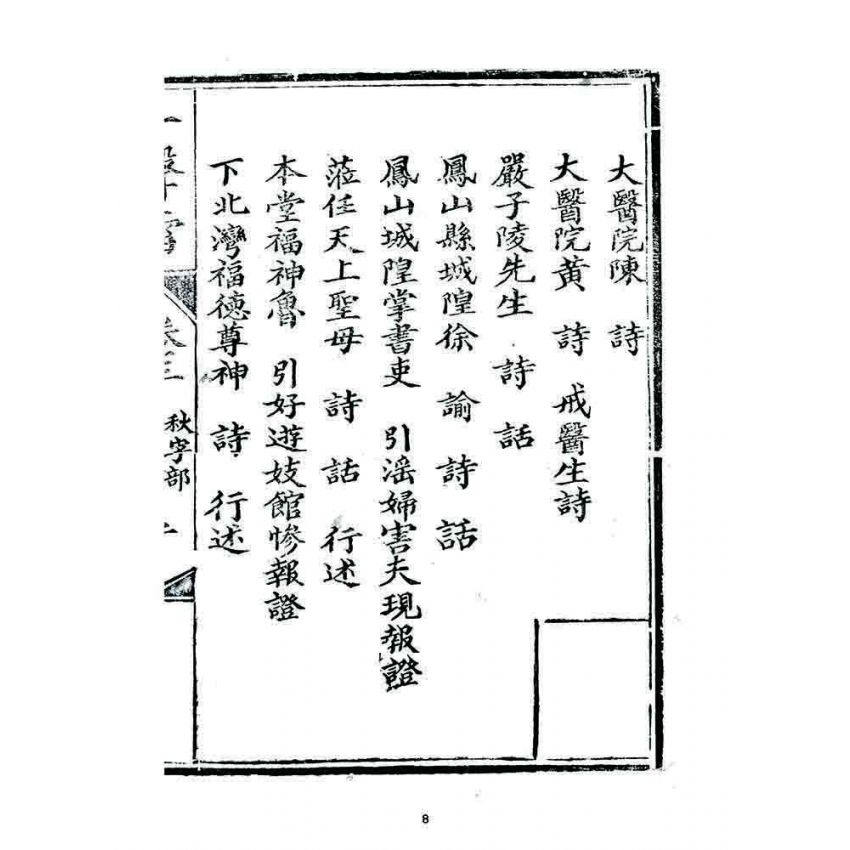 大醫院陳 詩
大醫院黄 詩 戒醫生詩
嚴子陵先生 詩 話
鳳山縣城隍徐 諭 詩 話
鳳山城隍掌書吏 引滛婦害夫現報證
蒞任天上聖母 詩 話 行述
本堂福神魯 引好遊妓館慘報證
下北灣福德尊神 詩 行述
卷三
秋字部
8